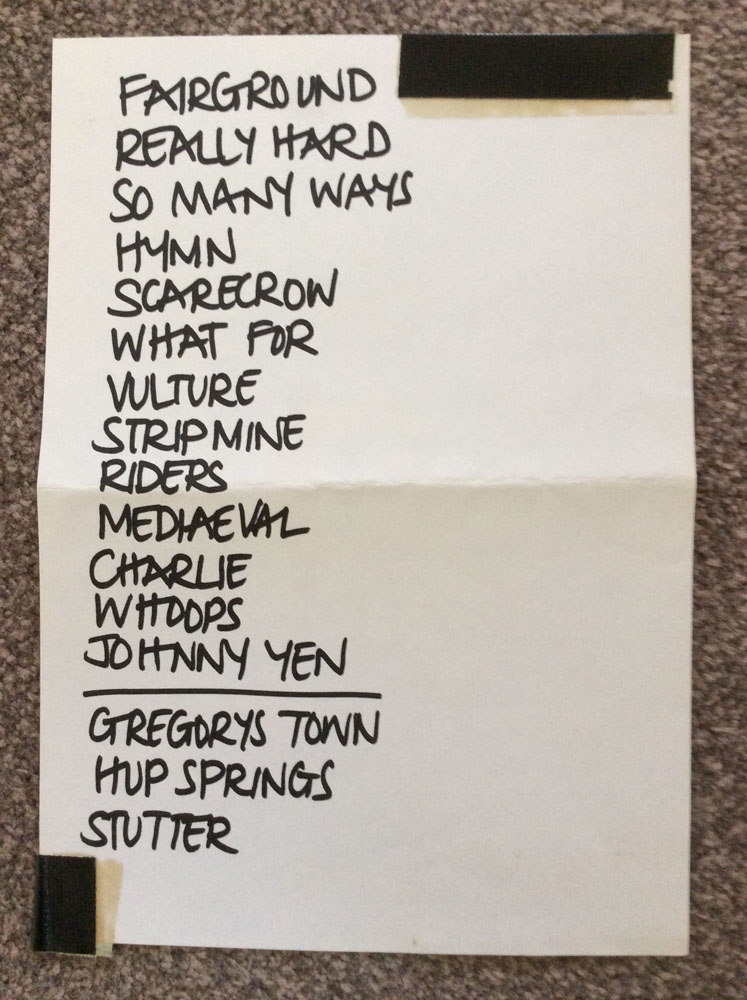 FAIRGROUND
REALLY HARD
SO MANY WAYS
HYMN
SCARECROW
WHAT FOR
VULTURE
STRIPMINE
RIDERS
MEDIAEVAL
CHARLIE
WHOOPS
JOHNNY YEN
GREGORYS TOWN
HUP SPRINGS
STUTTER